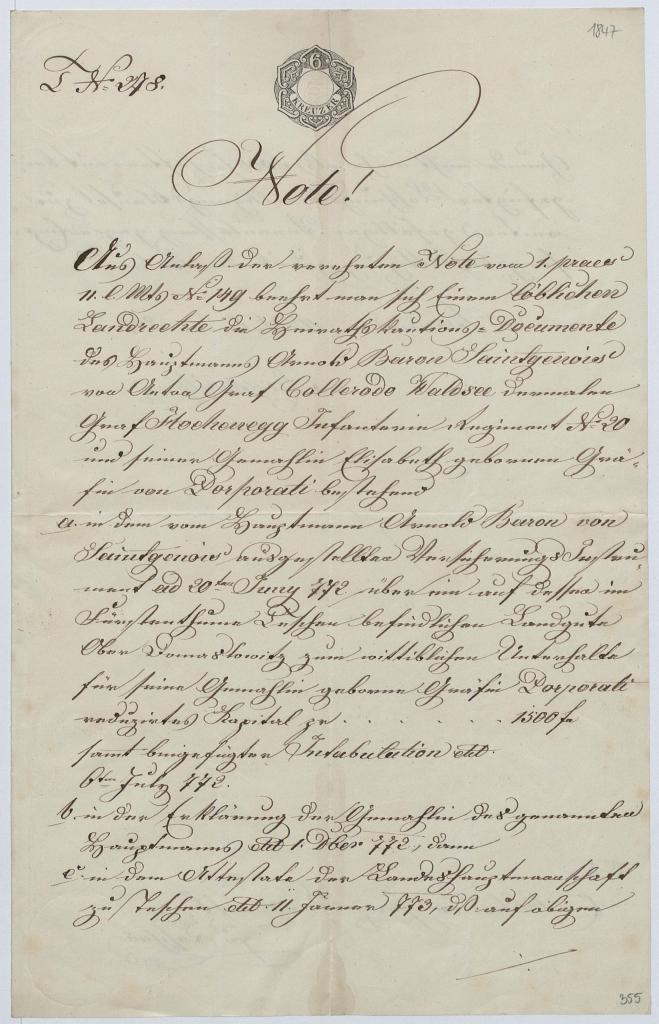 1847
T No 278.
6
KREUZER
Note!
Aus Anlaß der verehrten Note vom 1. praes
11. l. Mts No 149 beehrt man sich Einem löblichen
Landrechte die Heiraths Kautions=Documente
des Hauptmanns Arnold Baron Saintgenois
von Anton Graf Collerodo Waldsee dermalen
Graf Hochenegg Infanterie Regiment No 20
und seiner Gemahlin Elisabeth gebornen Grä=
fin von Porporati bestehend
a. in dem vom Hauptmann Arnold Baron von
Saintgenois ausgestellten Versicherungs Instru=
ment ad 20ten Juny 772 über ein auf dessen im
Fürstenthume Teschen befindlichen Landgute
Ober Domaslowitz zum wittiblichen Unterhalte
für seine Gemahlin geborne Gräfin Porporati
reduzirtes Kapital pr . . . . . . . 1500 f
samt beigefügter Intabulation dtd.
6ten July 772.
b. in der Erklärung der Gemahlin des genannten
Hauptmanns dtd 1. Dber 772, dann
c. in dem Attestate der Landeshauptmannschaft
zu Teschen dtd 11. Jänner 773, dß auf obigen
355